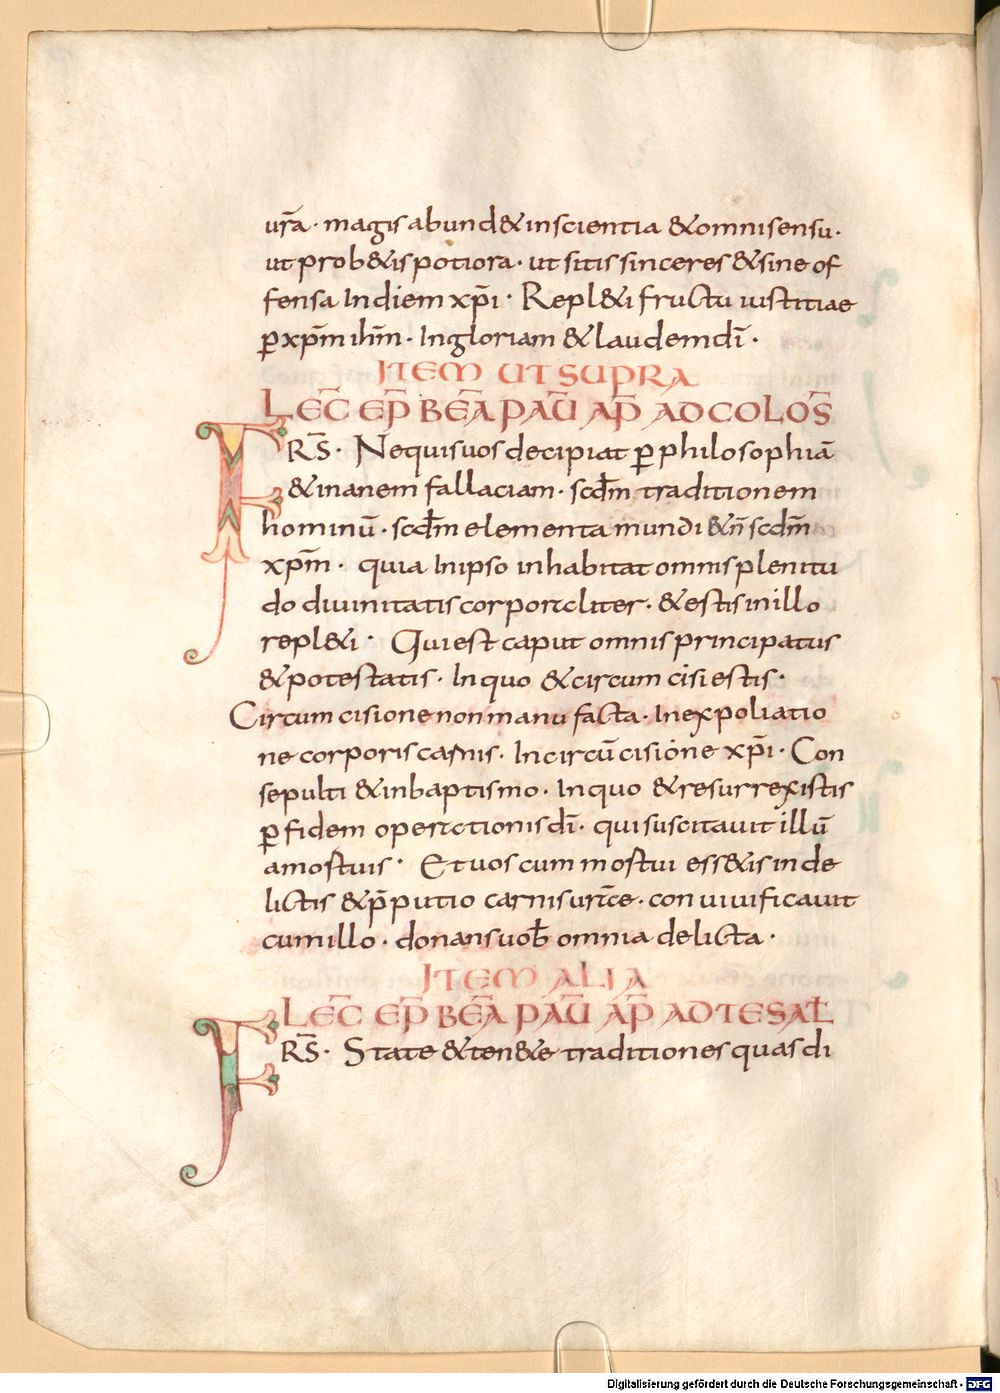 ur̄a · magis abund& in scientia & omni sensu ·
ut prob&is potiora · ut sitis sinceres & sine of
fensa In diem xp̄i · Repl&i fructu iustitiae
ꝑ xp̄m ihm̄ · In gloriam & laudem dī ·
ITEM UT SUPRA
LEC̄ EP̄ BEĀ PAŪ AP̄ AD COLOS̄
FRS̄ · Ne quis uos decipiat ꝑ philosophiā
& inanem fallaciam · scdm̄ traditionem
hominū · scdm̄ elementa mundi & n̄ scdm̄
xp̄m · quia In ipso inhabitat omnis plenitu
do diuinitatis corporaliter · & estis in illo
repl&i · Qui est caput omnis principatus
& potestatis · In quo & circumcisi estis ·
Circumcisione non manu facta · In expoliatio
ne corporis carnis · In circūcisione xp̄i · Con
sepulti & in baptismo · In quo & resurrexistis
ꝑ fidem operationis dī · qui suscitauit illū
a mortuis · Et uos cum mortui ess&is in de
lictis & p̄putio carnis ur̄ae · conuiuificauit
cum illo · donans uob̄ omnia delicta ·
ITEM ALIA
LEC̄ EP̄ BEĀ PAŪ AP̄ AD TESAL̄
FRS̄ · State & ten&e traditiones quas di
Digitalisierung gefördert durch die Deutsche Forschungsgemeinschaft - DFG